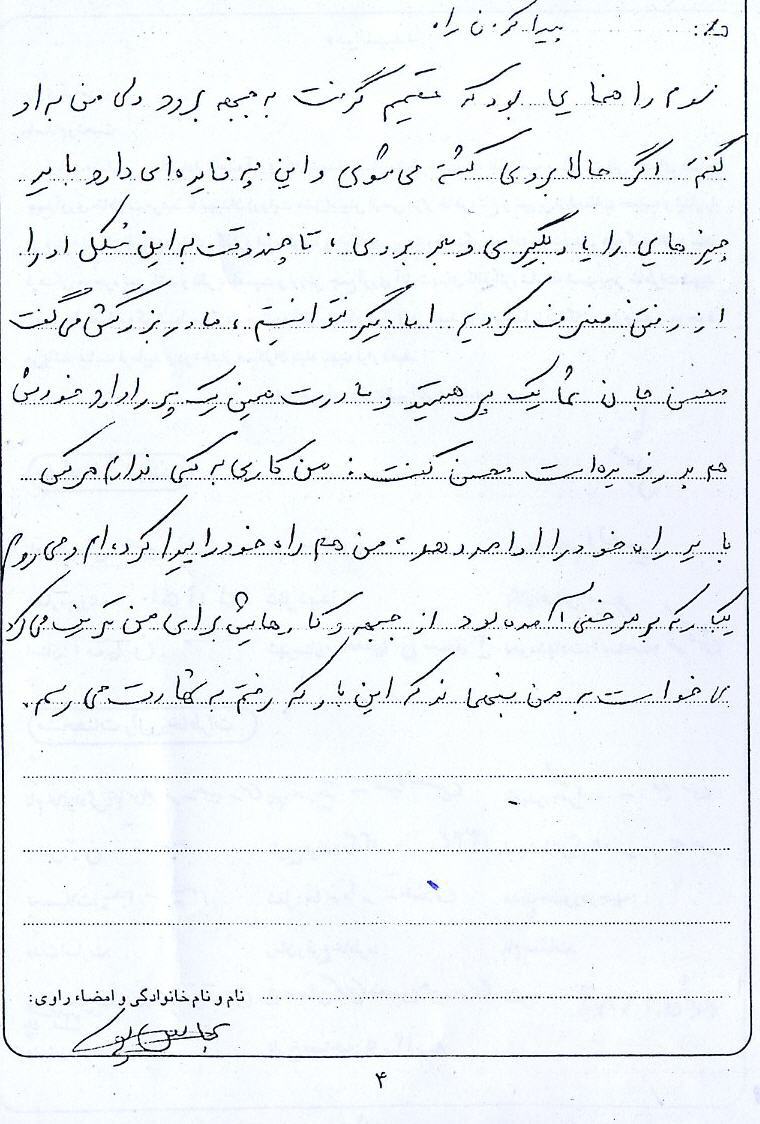 پیدا کردن راه
سوم راهنمایی بود که تصمیم گرفت به جبهه برود ولی من به او
گفتم اگر حالا بروی کشته می‌شوی و این چه فایده‌ای دارد باید
چیزهایی را یاد بگیری و بعد بروی، تا چند وقت به این شکل او را
از رفتن منصرف کردیم اما دیگر نتوانستیم، مادربزرگش می‌گفت
محسن جان شما یک پسر هستید و مادرت همین یک پسر را دارد خودش
هم محسن گفت: من کاری به کسی ندارم هر کس
باید راه خود را ادامه دهد، من هم راه خود را پیدا کرده‌ام و می‌روم
یکبار که به مرخصی آمده بود از جبهه و کارهایش برای من تعریف می‌کرد
می‌خواست به من بفهماند که این بار که رفتم به شهادت می‌رسم.
نام و نام خانوادگی و امضاء راوی:
۴